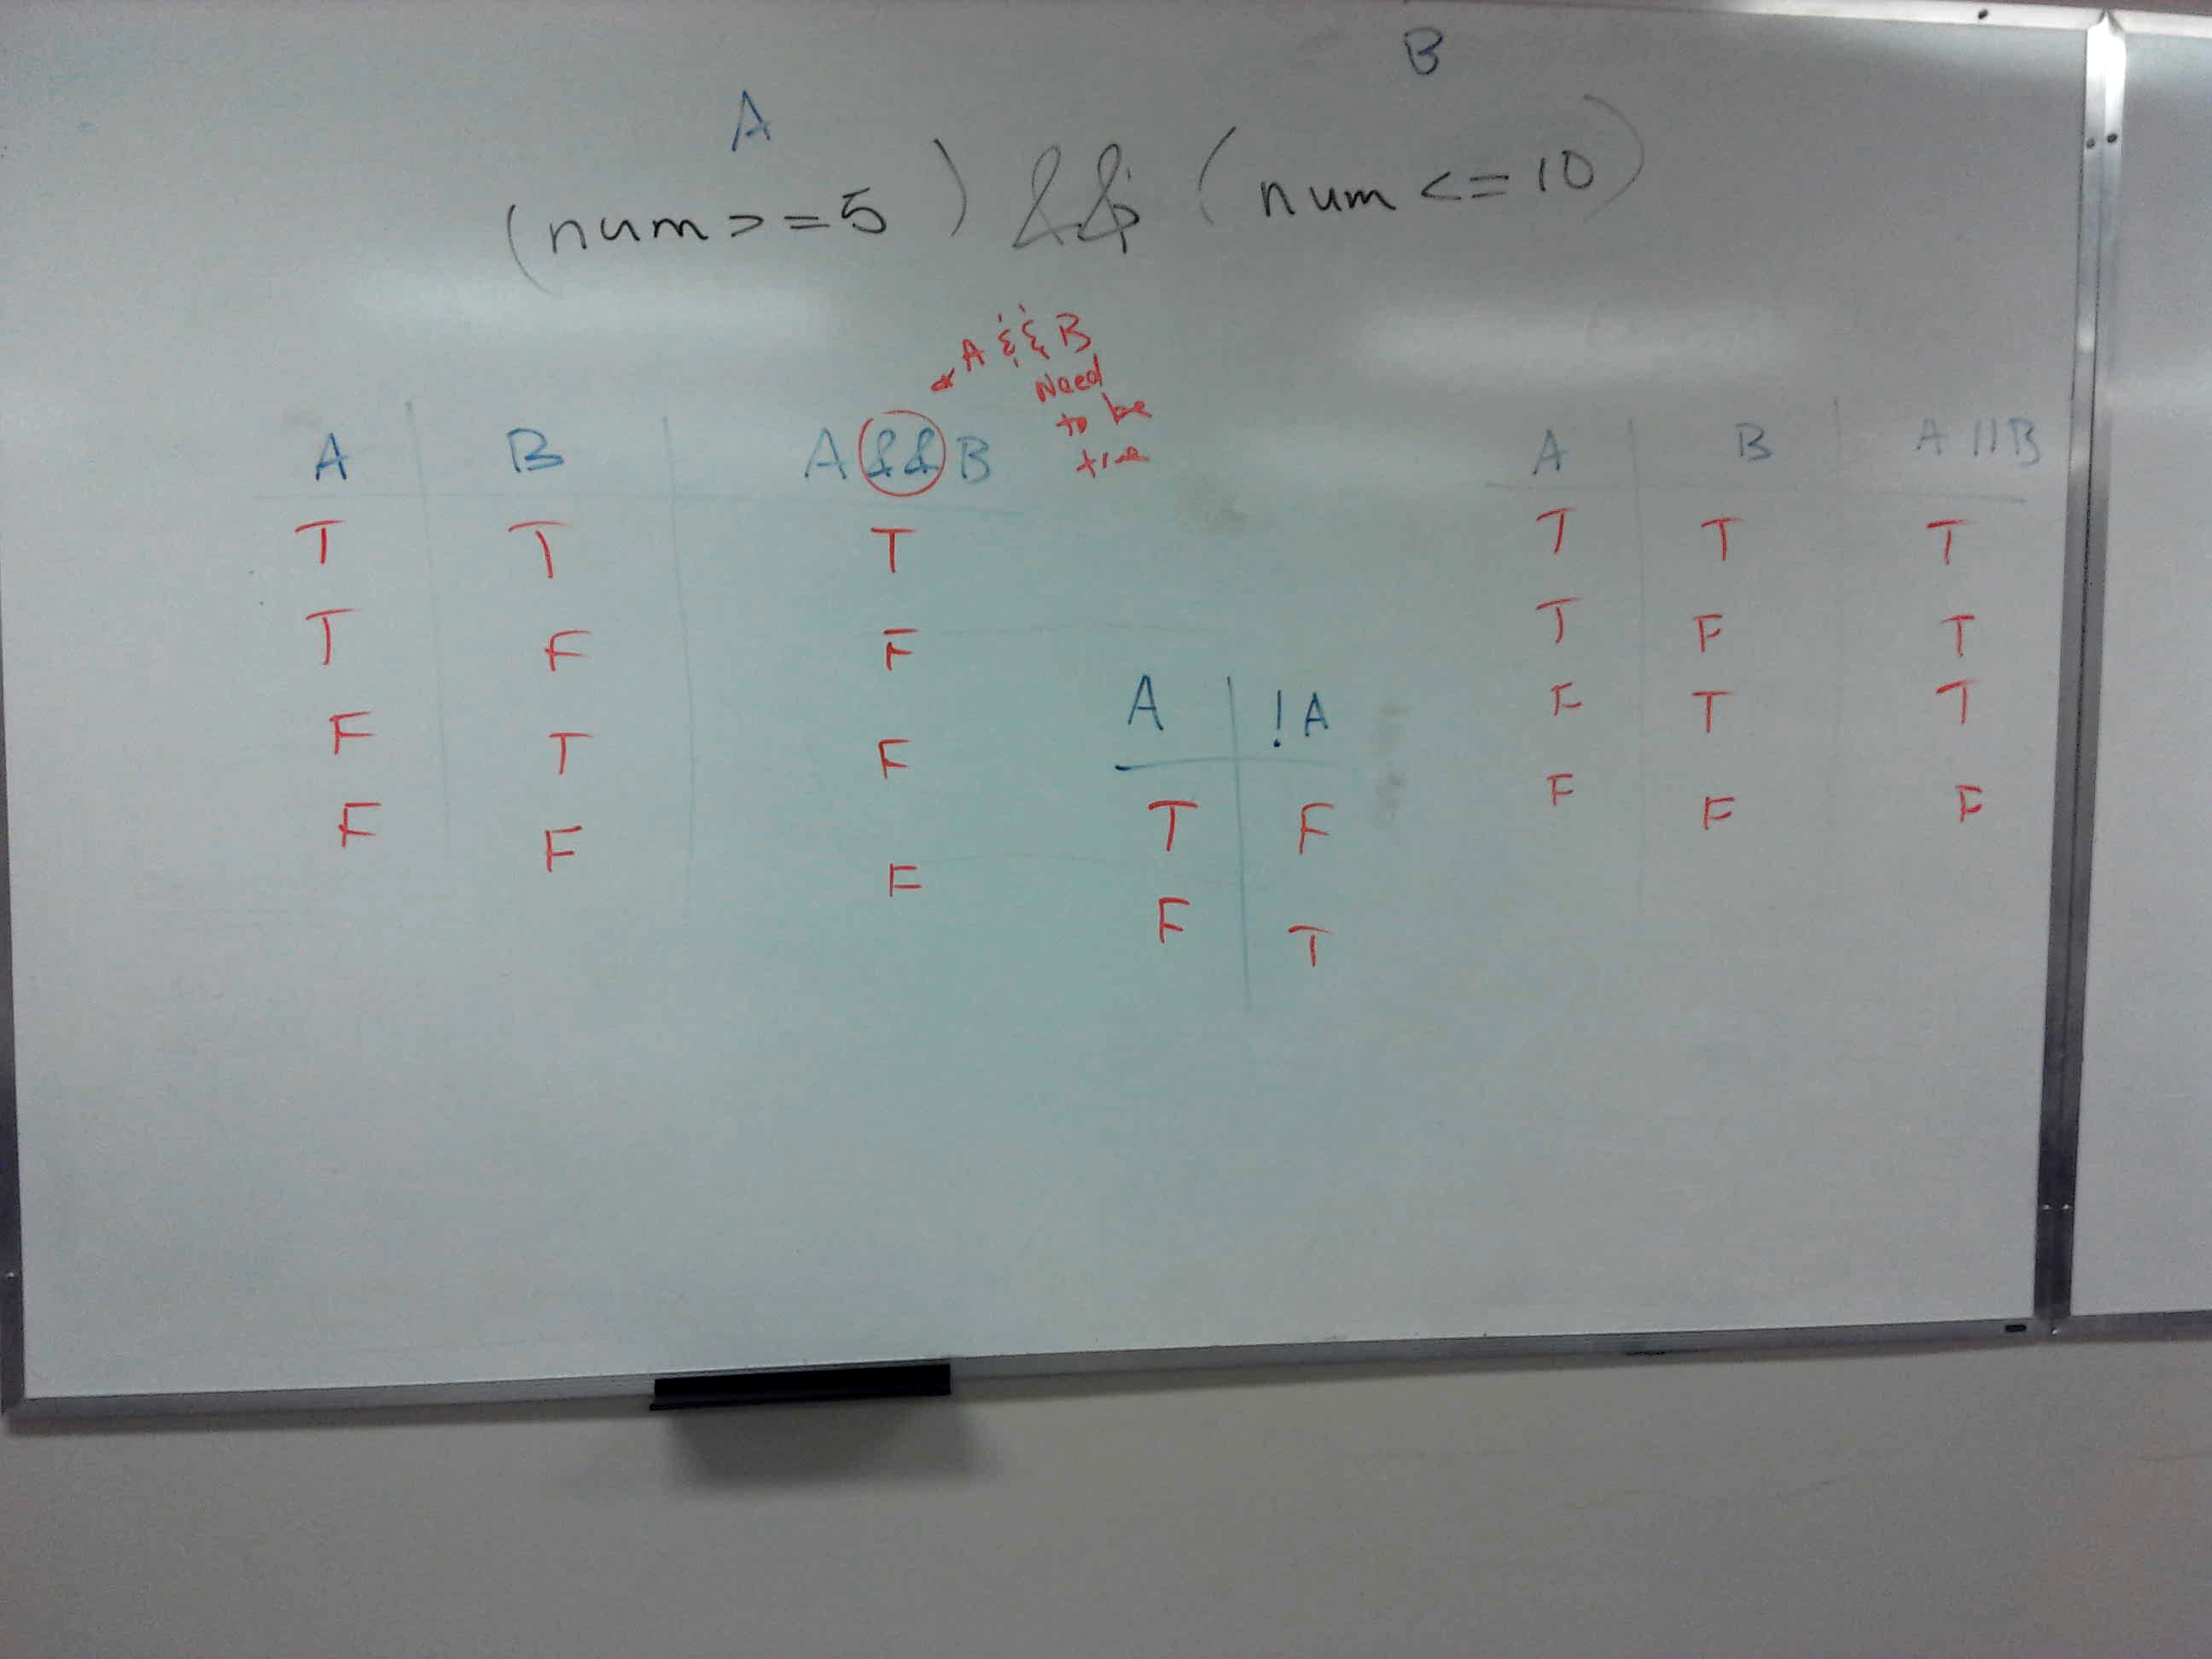 A B
(num >= 5) && (num <= 10)
A && B
Need
to be
true
A B A && B
T T T
T F F
F T F
F F F
A !A
T F
F T
A B A || B
T T T
T F T
F T T
F F F